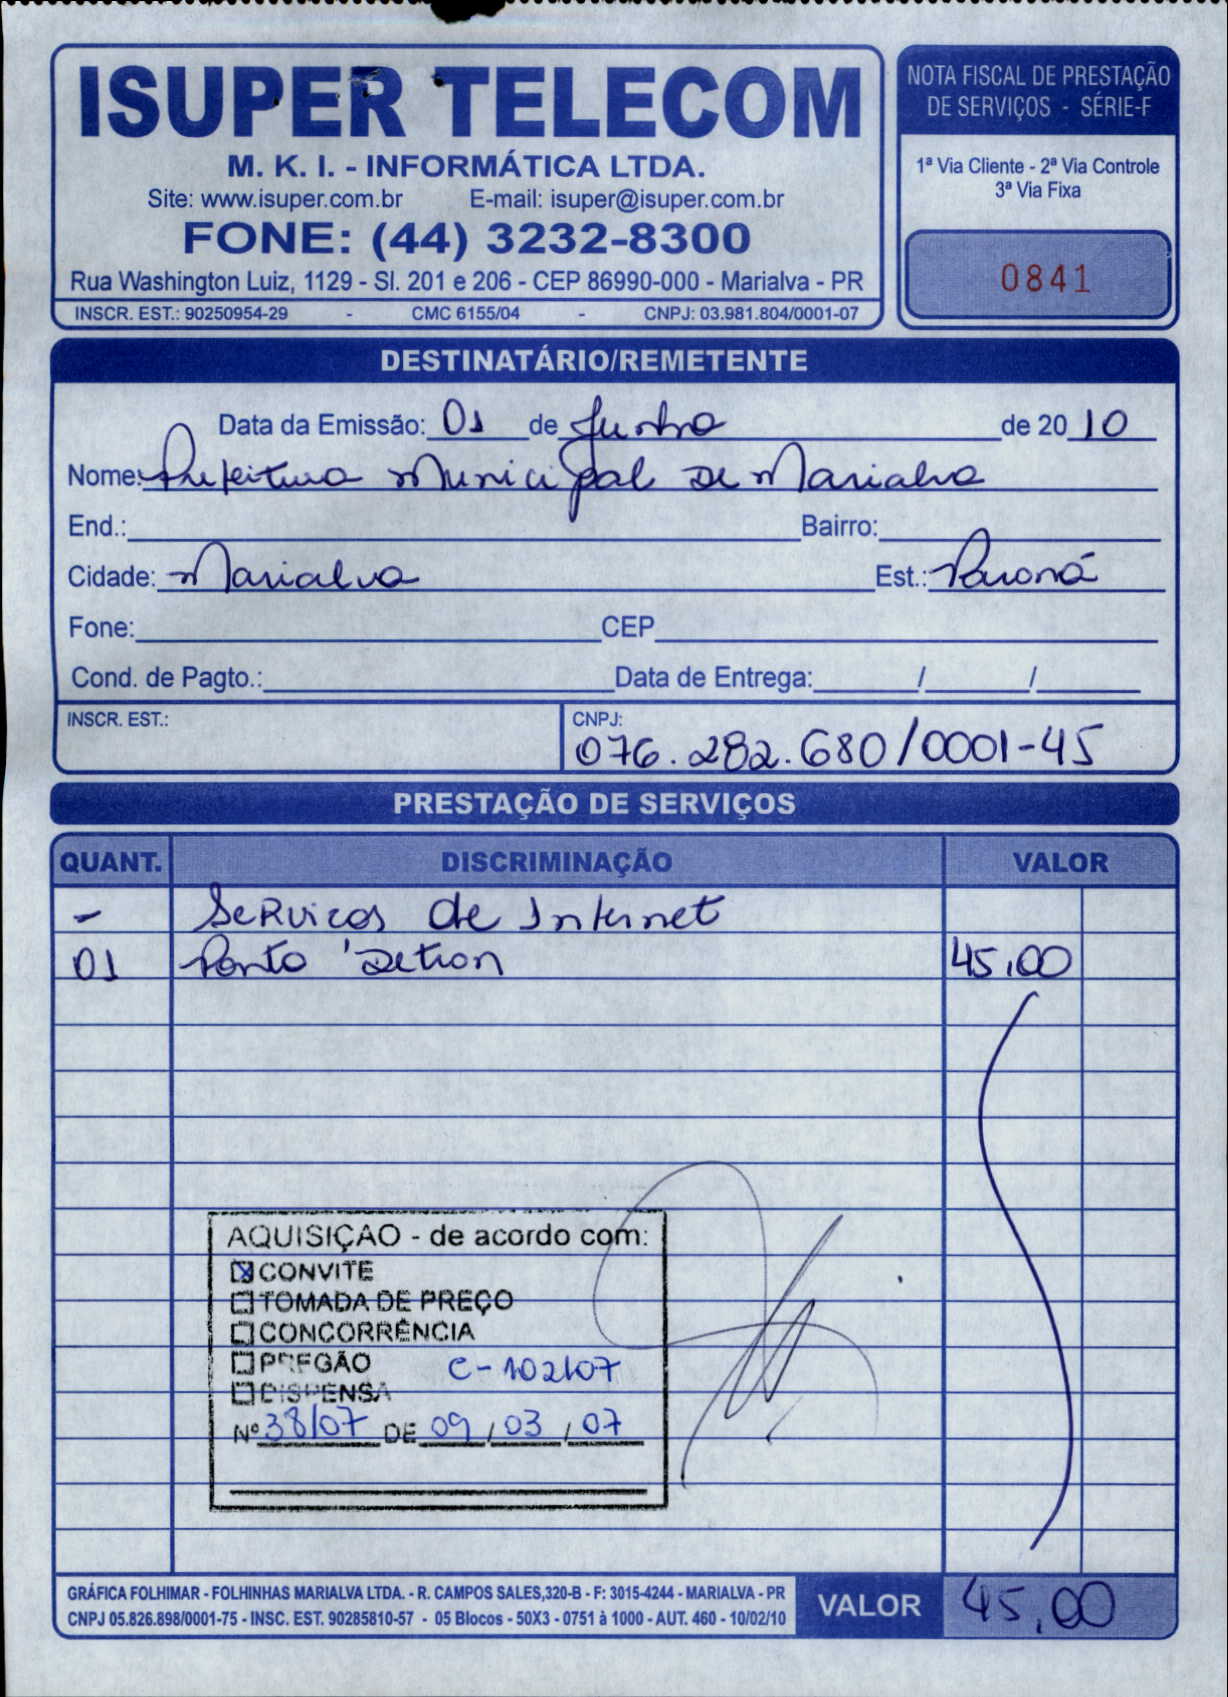 ISUPER TELECOM
M. K. I. - INFORMÁTICA LTDA.
Site: www.isuper.com.br E-mail: isuper@isuper.com.br
FONE: (44) 3232-8300
Rua Washington Luiz, 1129 - Sl. 201 e 206 - CEP 86990-000 - Marialva - PR
INSCR. EST.: 90250954-29 - CMC 6155/04 - CNPJ: 03.981.804/0001-07
NOTA FISCAL DE PRESTAÇÃO
DE SERVIÇOS - SÉRIE-F
1ª Via Cliente - 2ª Via Controle
3ª Via Fixa
0841
DESTINATÁRIO/REMETENTE
Data da Emissão: 01 de Junho de 2010
Nome: Prefeitura Municipal De Marialva
End.: Bairro:
Cidade: Marialva Est.: Paraná
Fone: CEP
Cond. de Pagto.: Data de Entrega: / /
INSCR. EST.: CNPJ:
076.282.680/0001-45
PRESTAÇÃO DE SERVIÇOS
QUANT. DISCRIMINAÇÃO VALOR
- Servicos de Internet
01 Ponto Detran 45,00
AQUISIÇÃO - de acordo com:
CONVITE
TOMADA DE PREÇO
CONCORRÊNCIA
PREGÃO C-102/07
DISPENSA
Nº 38/07 DE 09/03/07
GRÁFICA FOLHIMAR - FOLHINHAS MARIALVA LTDA. - R. CAMPOS SALES,320-B - F: 3015-4244 - MARIALVA - PR
CNPJ 05.826.898/0001-75 - INSC. EST. 90285810-57 - 05 Blocos - 50X3 - 0751 à 1000 - AUT. 460 - 10/02/10
VALOR 45,00